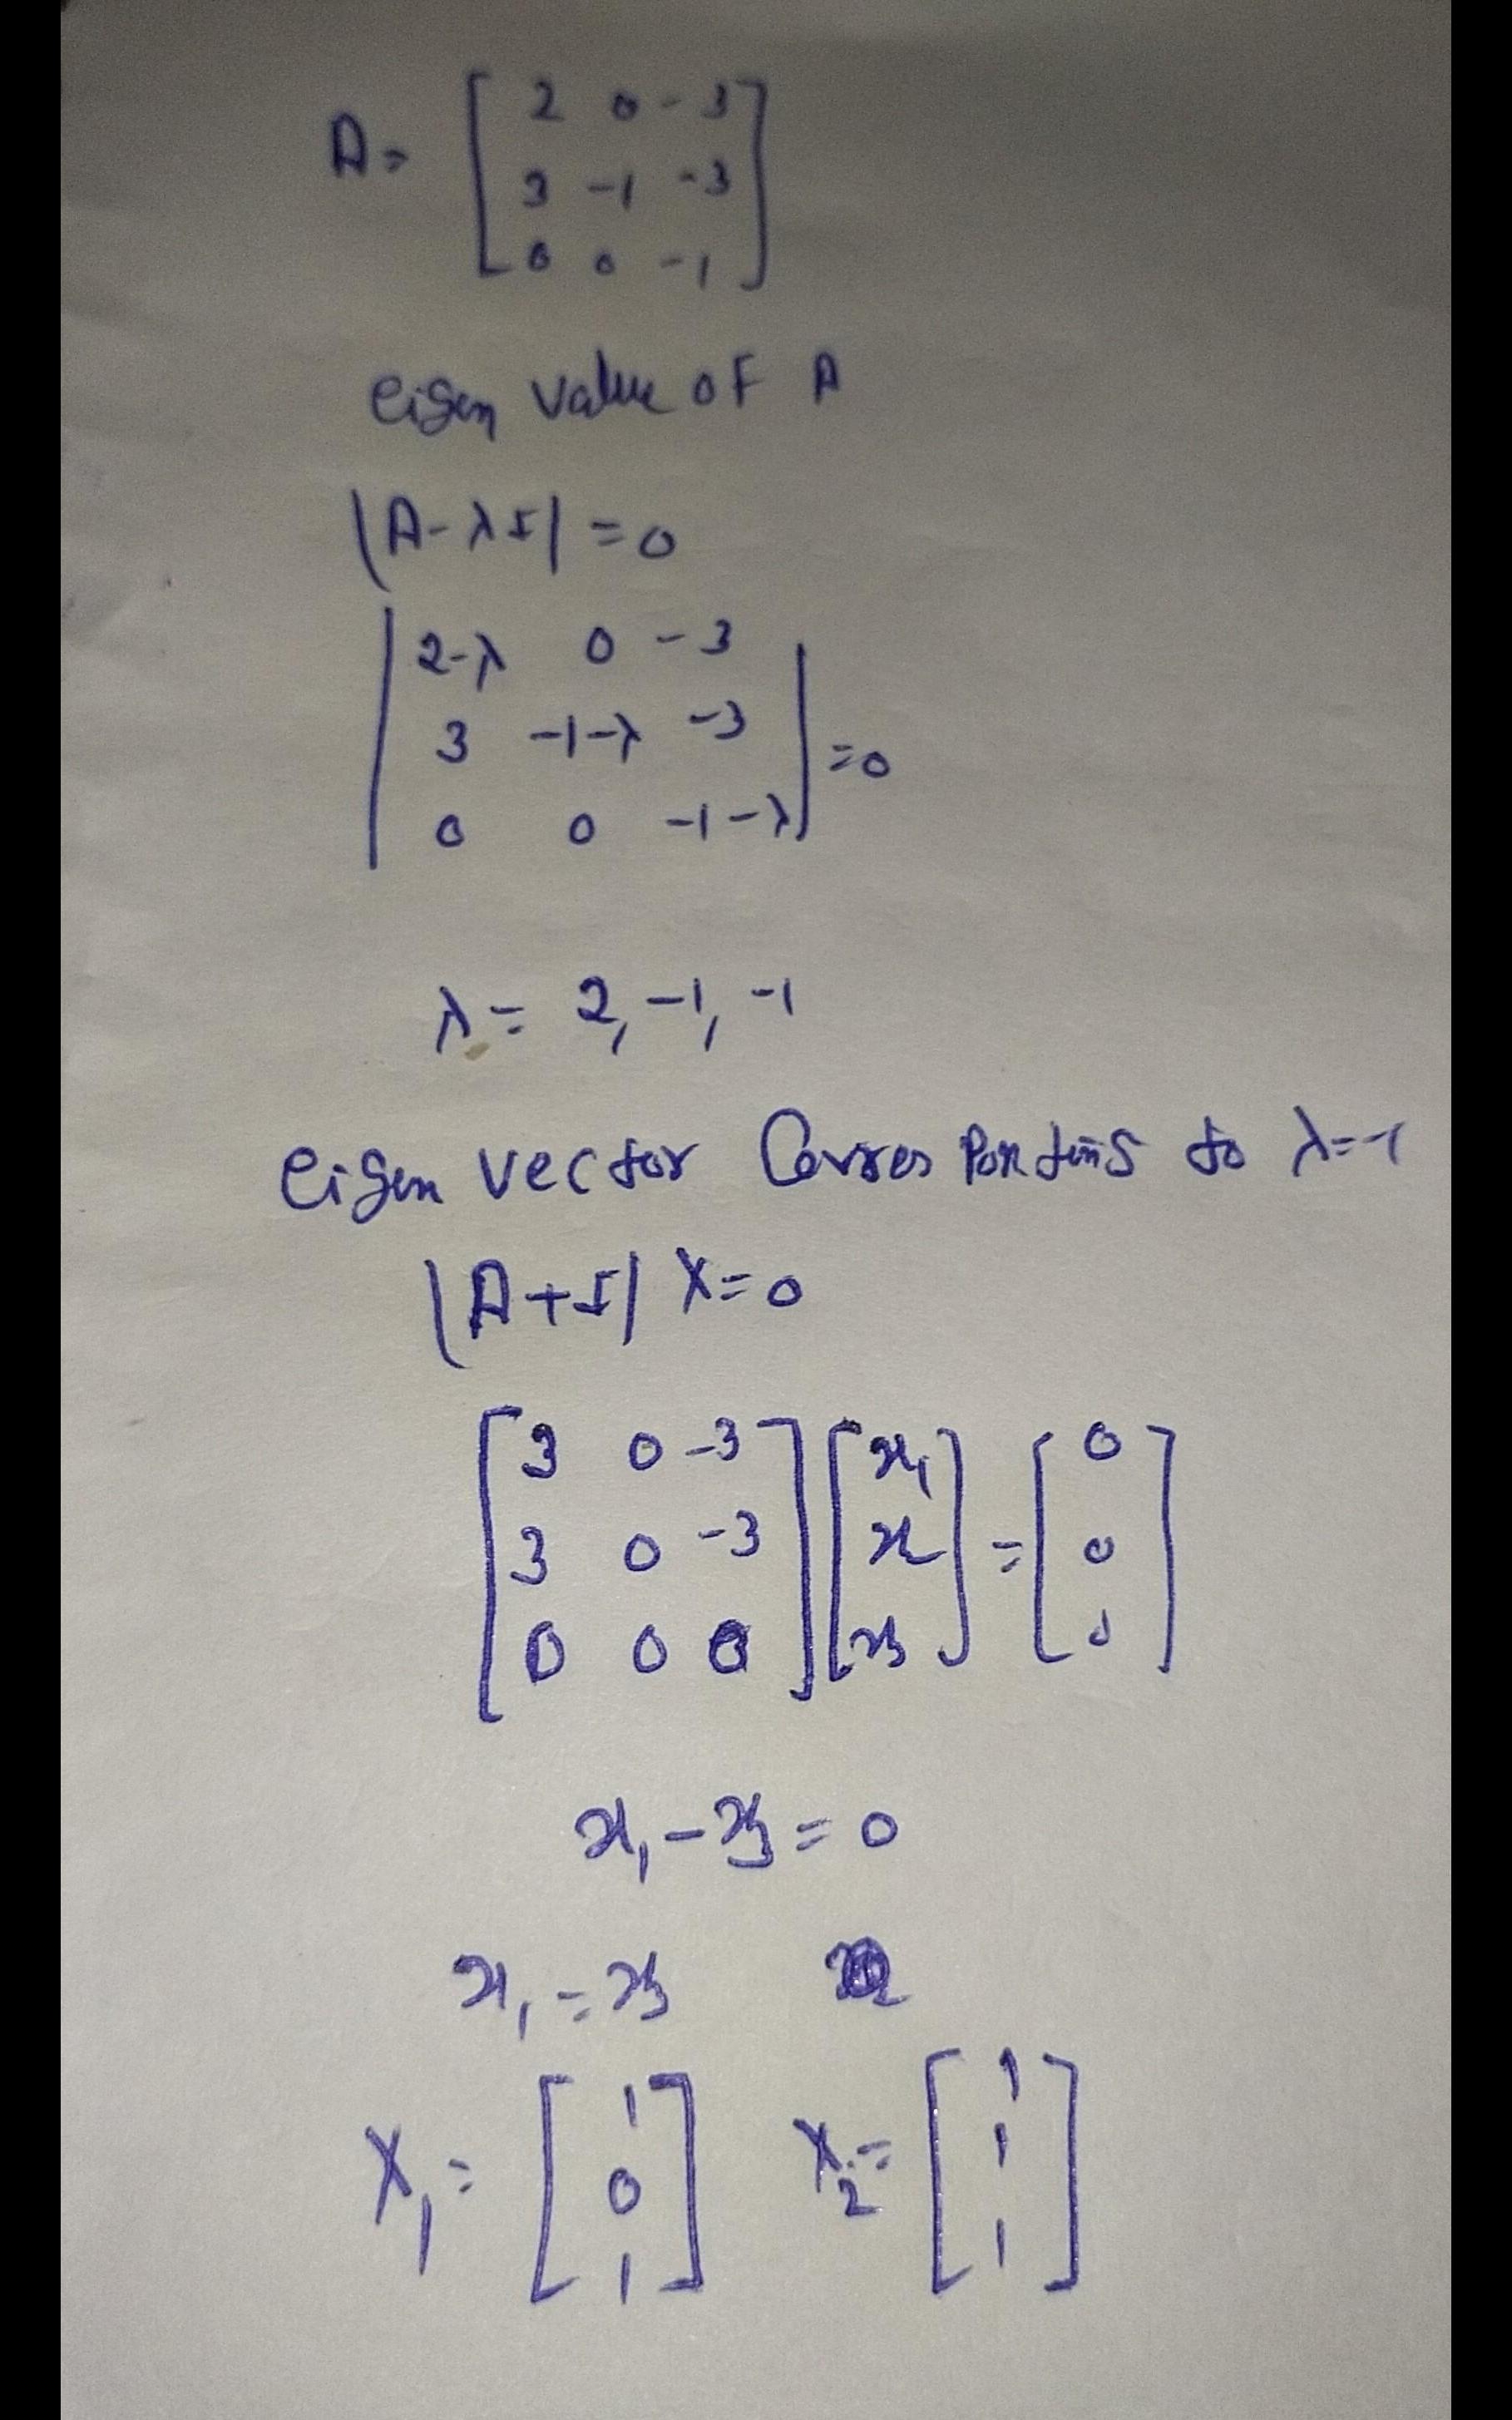 A= [ 2 0 -3
3 -1 -3
0 0 -1 ]
eigen value of A
|A-λI| =0
| 2-λ 0 -3
3 -1-λ -3 | =0
0 0 -1-λ
λ= 2, -1, -1
eigen vector Corresponding to λ=-1
|A+I| X=0
[ 3 0 -3 ] [ x₁ ] = [ 0 ]
[ 3 0 -3 ] [ x ] = [ 0 ]
[ 0 0 0 ] [ x₃ ] [ ]
x₁ - x₃ = 0
x₁ = x₃
X₁ = [ 1 0 1 ] X₂ = [ 1 1 1 ]